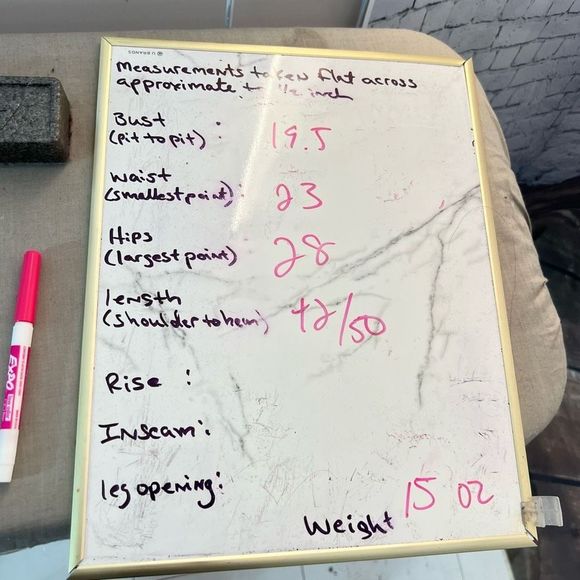 U BRANDS
Measurements taken flat across
approximate +- 1/2 inch
Bust
(pit to pit) : 19.5
waist
(smallest point) : 23
Hips
(largest point) 28
length
(shoulder to hem) 42/50
Rise :
Inseam :
leg opening :
Weight 15 oz
EXPO